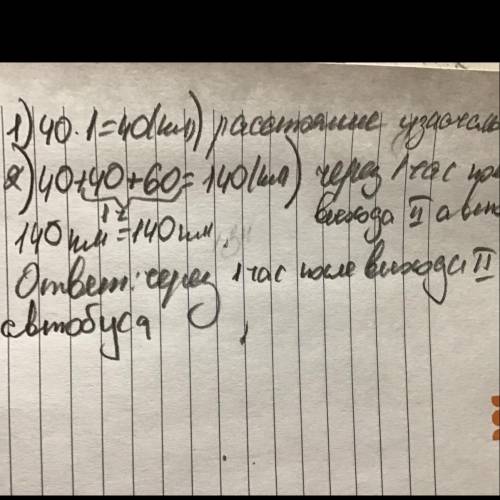 1) 40·1=40(км) расстояние
2) 40+40+60=140(км) через 1 час
1ч выхода II
140 км=140 км.
Ответ: через 1 час после выхода II
автобуса